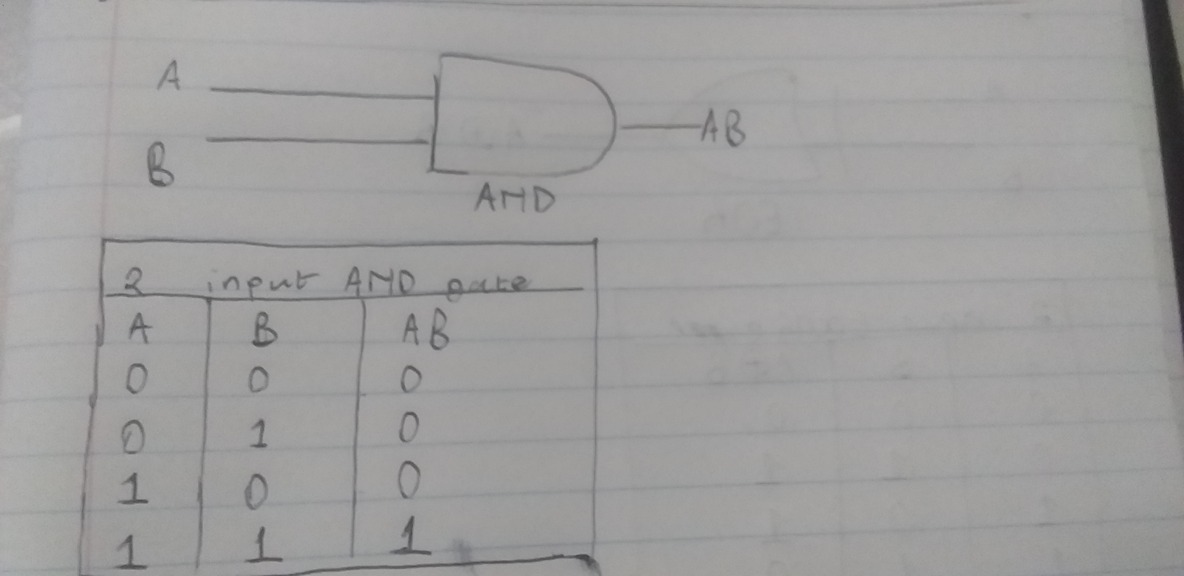 A
B
AB
AND
2 input AND gate
A B AB
0 0 0
0 1 0
1 0 0
1 1 1